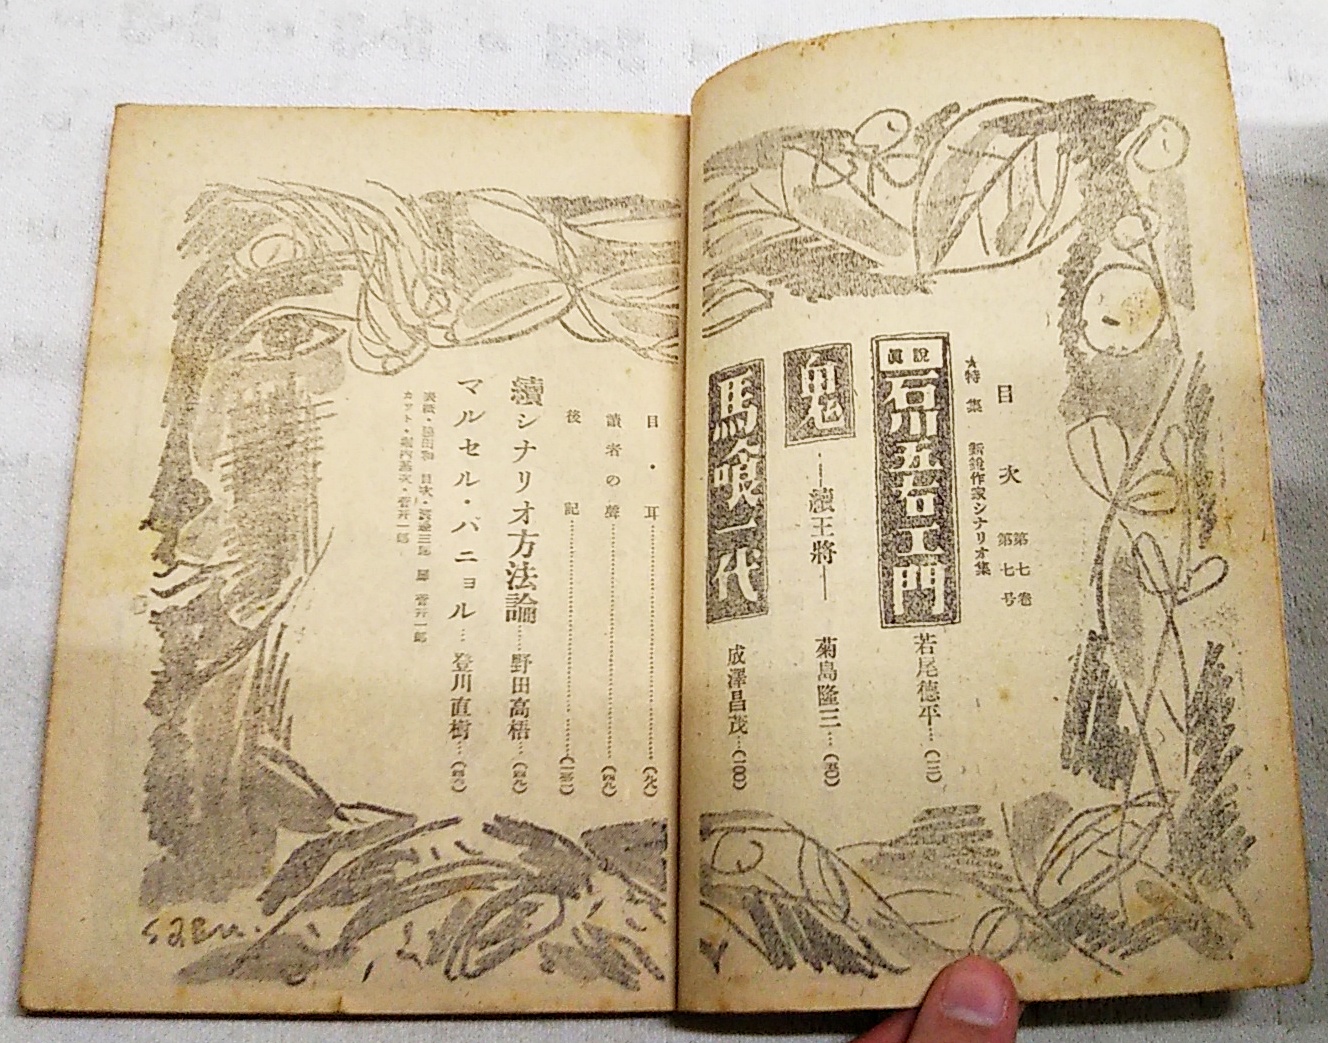 目次
第七巻
第七号
★特集 新鋭作家シナリオ集
眞説
石川五右エ門
若尾徳平…(二)
鬼
―續王將―
菊島隆三…(五〇)
馬喰一代
成澤昌茂…(一〇〇)
目・耳……(九八)
讀者の聲……(四九)
後記……
續シナリオ方法論……野田高梧…(四九)
マルセル・パニョル…登川直樹…
カット・
菅井一郎
saeu.